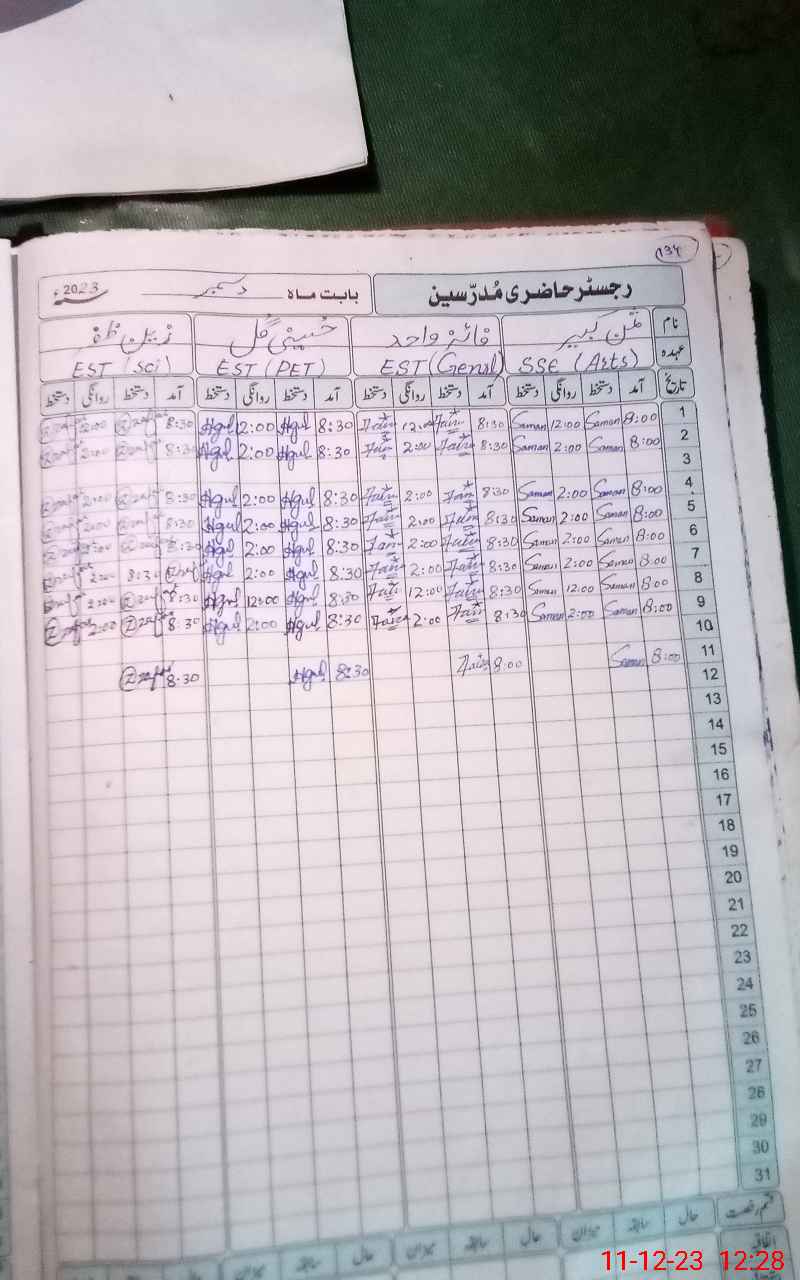 134
رجسٹر حاضری مُدرّسین
بابت ماہ دسمبر 2023ء
نام ثمن کبیر فائزہ واحد حسینی گل
عہدہ SSE (Arts) EST (Genrl) EST (PET) EST (Sci)
تاریخ آمد دستخط روانگی دستخط آمد دستخط روانگی دستخط آمد دستخط روانگی دستخط آمد دستخط روانگی دستخط
1 8:00 Saman 12:00 Saman 8:30 Faiz 12:00 Faiz 8:30 Hgul 2:00 Hgul 8:30 Zzaf 2:00 Zzaf
2 8:00 Saman 2:00 Saman 8:30 Faiz 2:00 Faiz 8:30 Hgul 2:00 Hgul 8:30 Zzaf 2:00 Zzaf
3
4 8:00 Saman 2:00 Saman 8:30 Faiz 2:00 Faiz 8:30 Hgul 2:00 Hgul 8:30 Zzaf 2:00 Zzaf
5 8:00 Saman 2:00 Saman 8:30 Faiz 2:00 Faiz 8:30 Hgul 2:00 Hgul 8:30 Zzaf 2:00 Zzaf
6 8:00 Saman 2:00 Saman 8:30 Faiz 2:00 Faiz 8:30 Hgul 2:00 Hgul 8:30 Zzaf 2:00 Zzaf
7 8:00 Saman 2:00 Saman 8:30 Faiz 2:00 Faiz 8:30 Hgul 2:00 Hgul Zzaf 8:30 2:00 Zzaf
8 8:00 Saman 12:00 Saman 8:30 Faiz 12:00 Faiz 8:30 Hgul 12:00 Hgul 8:30 Zzaf 2:00 Zzaf
9 8:00 Saman 2:00 Saman 8:30 Faiz 2:00 Faiz 8:30 Hgul 2:00 Hgul 8:30 Zzaf 2:00 Zzaf
10
11 8:00 Saman 8:00 Faiz 8:30 Hgul 8:30 Zzaf
12
13
14
15
16
17
18
19
20
21
22
23
24
25
26
27
28
29
30
31
قسم رخصت حال سابقہ میزان حال سابقہ میزان حال سابقہ میزان حال سابقہ
اتفاقیہ
11-12-23 12:28